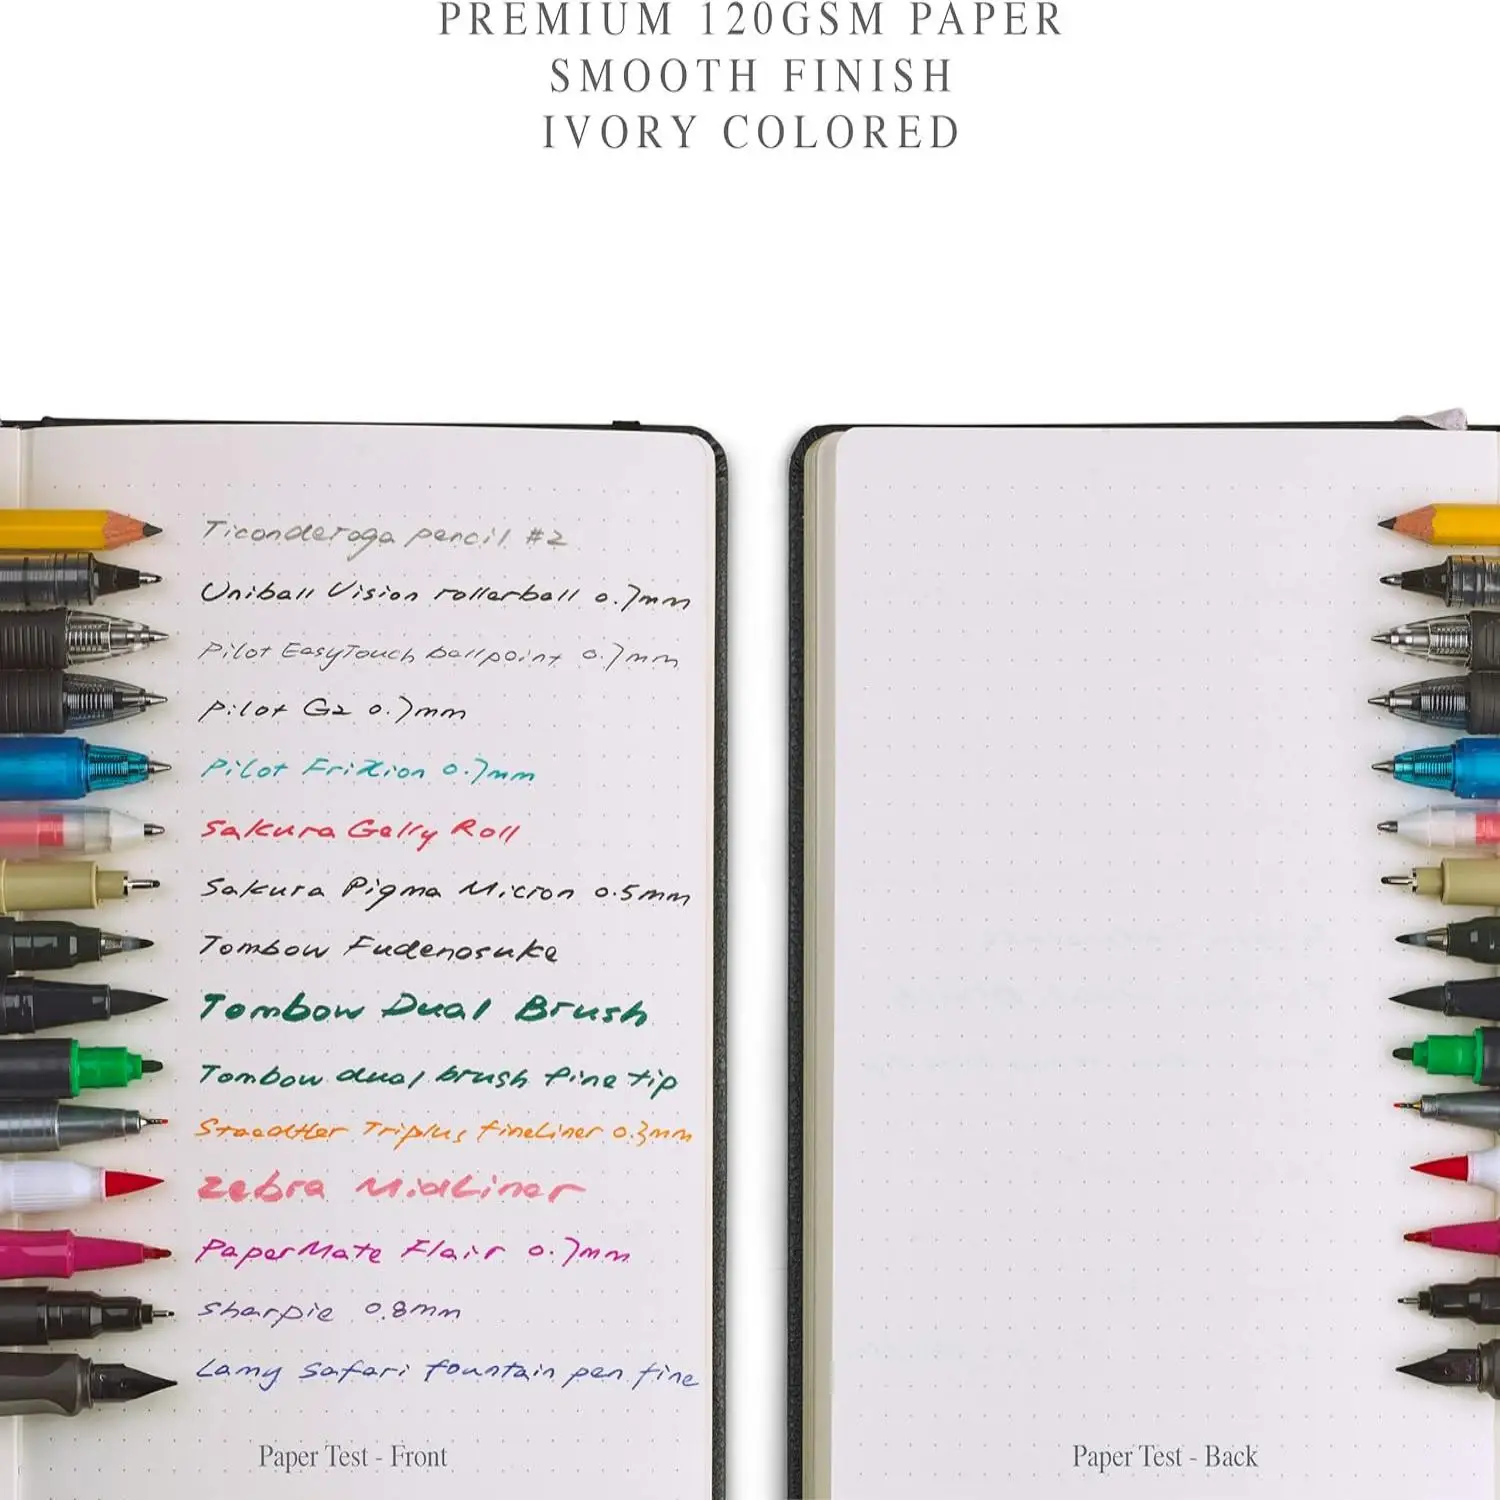 PREMIUM 120GSM PAPER
SMOOTH FINISH
IVORY COLORED
Ticonderoga pencil #2
Uniball Vision rollerball 0.7mm
Pilot EasyTouch ballpoint 0.7mm
Pilot G2 0.7mm
Pilot FriXion 0.7mm
Sakura Gelly Roll
Sakura Pigma Micron 0.5mm
Tombow Fudenosuke
Tombow Dual Brush
Tombow dual brush fine tip
Staedtler Triplus fineliner 0.3mm
Zebra MidLiner
PaperMate Flair 0.7mm
Sharpie 0.8mm
Lamy Safari fountain pen fine
Paper Test - Front
Paper Test - Back